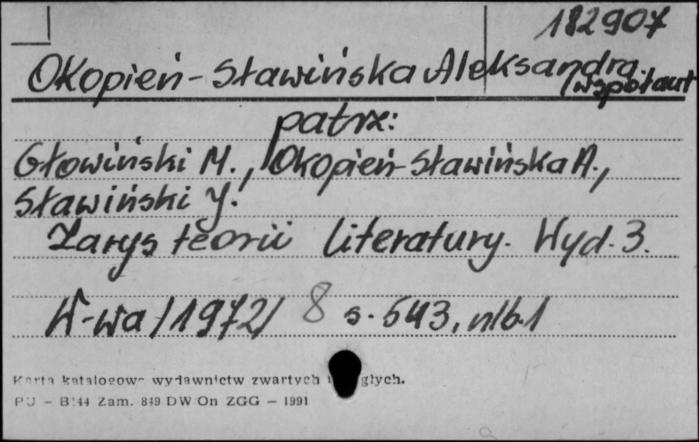 182907
Okopień-Sławińska Aleksandra
/współaut
patrz:
Głowiński M., Okopień-Sławińska A.,
Sławiński J.
Zarys teorii literatury. Wyd. 3.
W-wa /1972/ 8 s. 543, nlb. 1
Karta katalogowa wydawnictw zwartych
PU – B144 Zam. 849 DW On ZGG – 1991